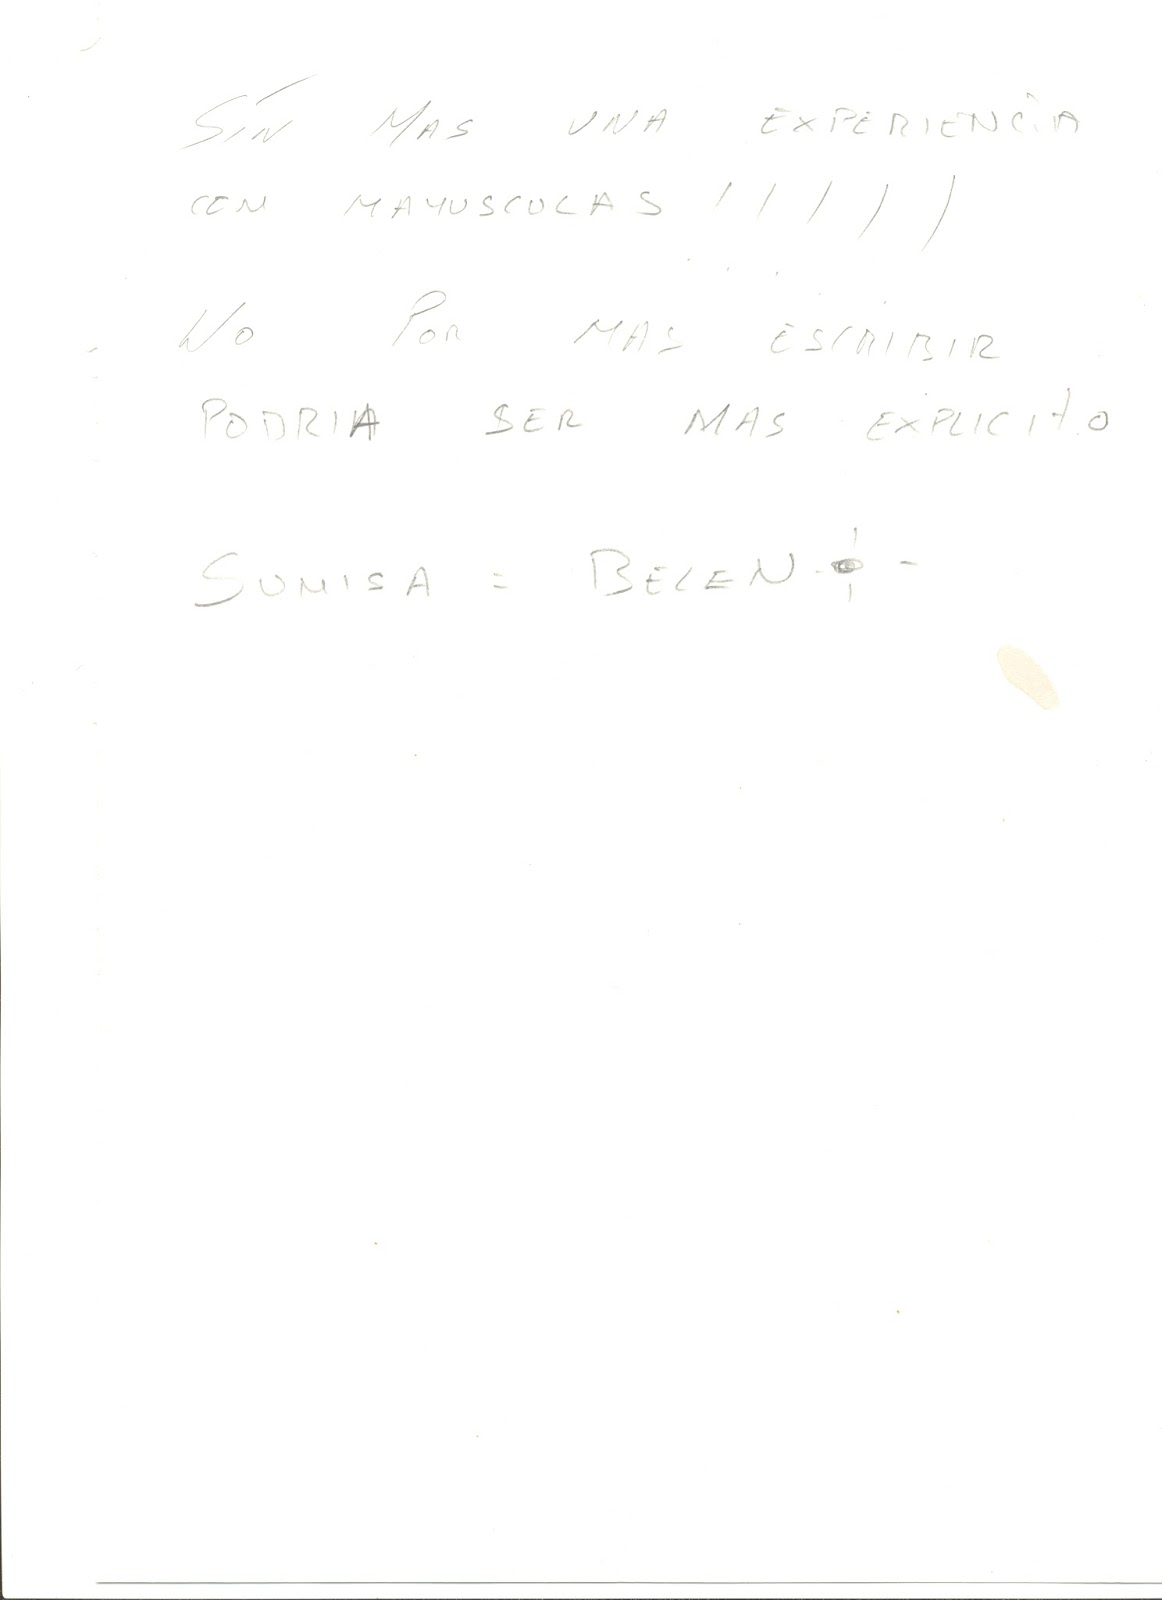 SIN MAS UNA EXPERIENCIA
CON MAYUSCULAS !!!!!
NO POR MAS ESCRIBIR
PODRIA SER MAS EXPLICITO
SUMISA = BELEN -